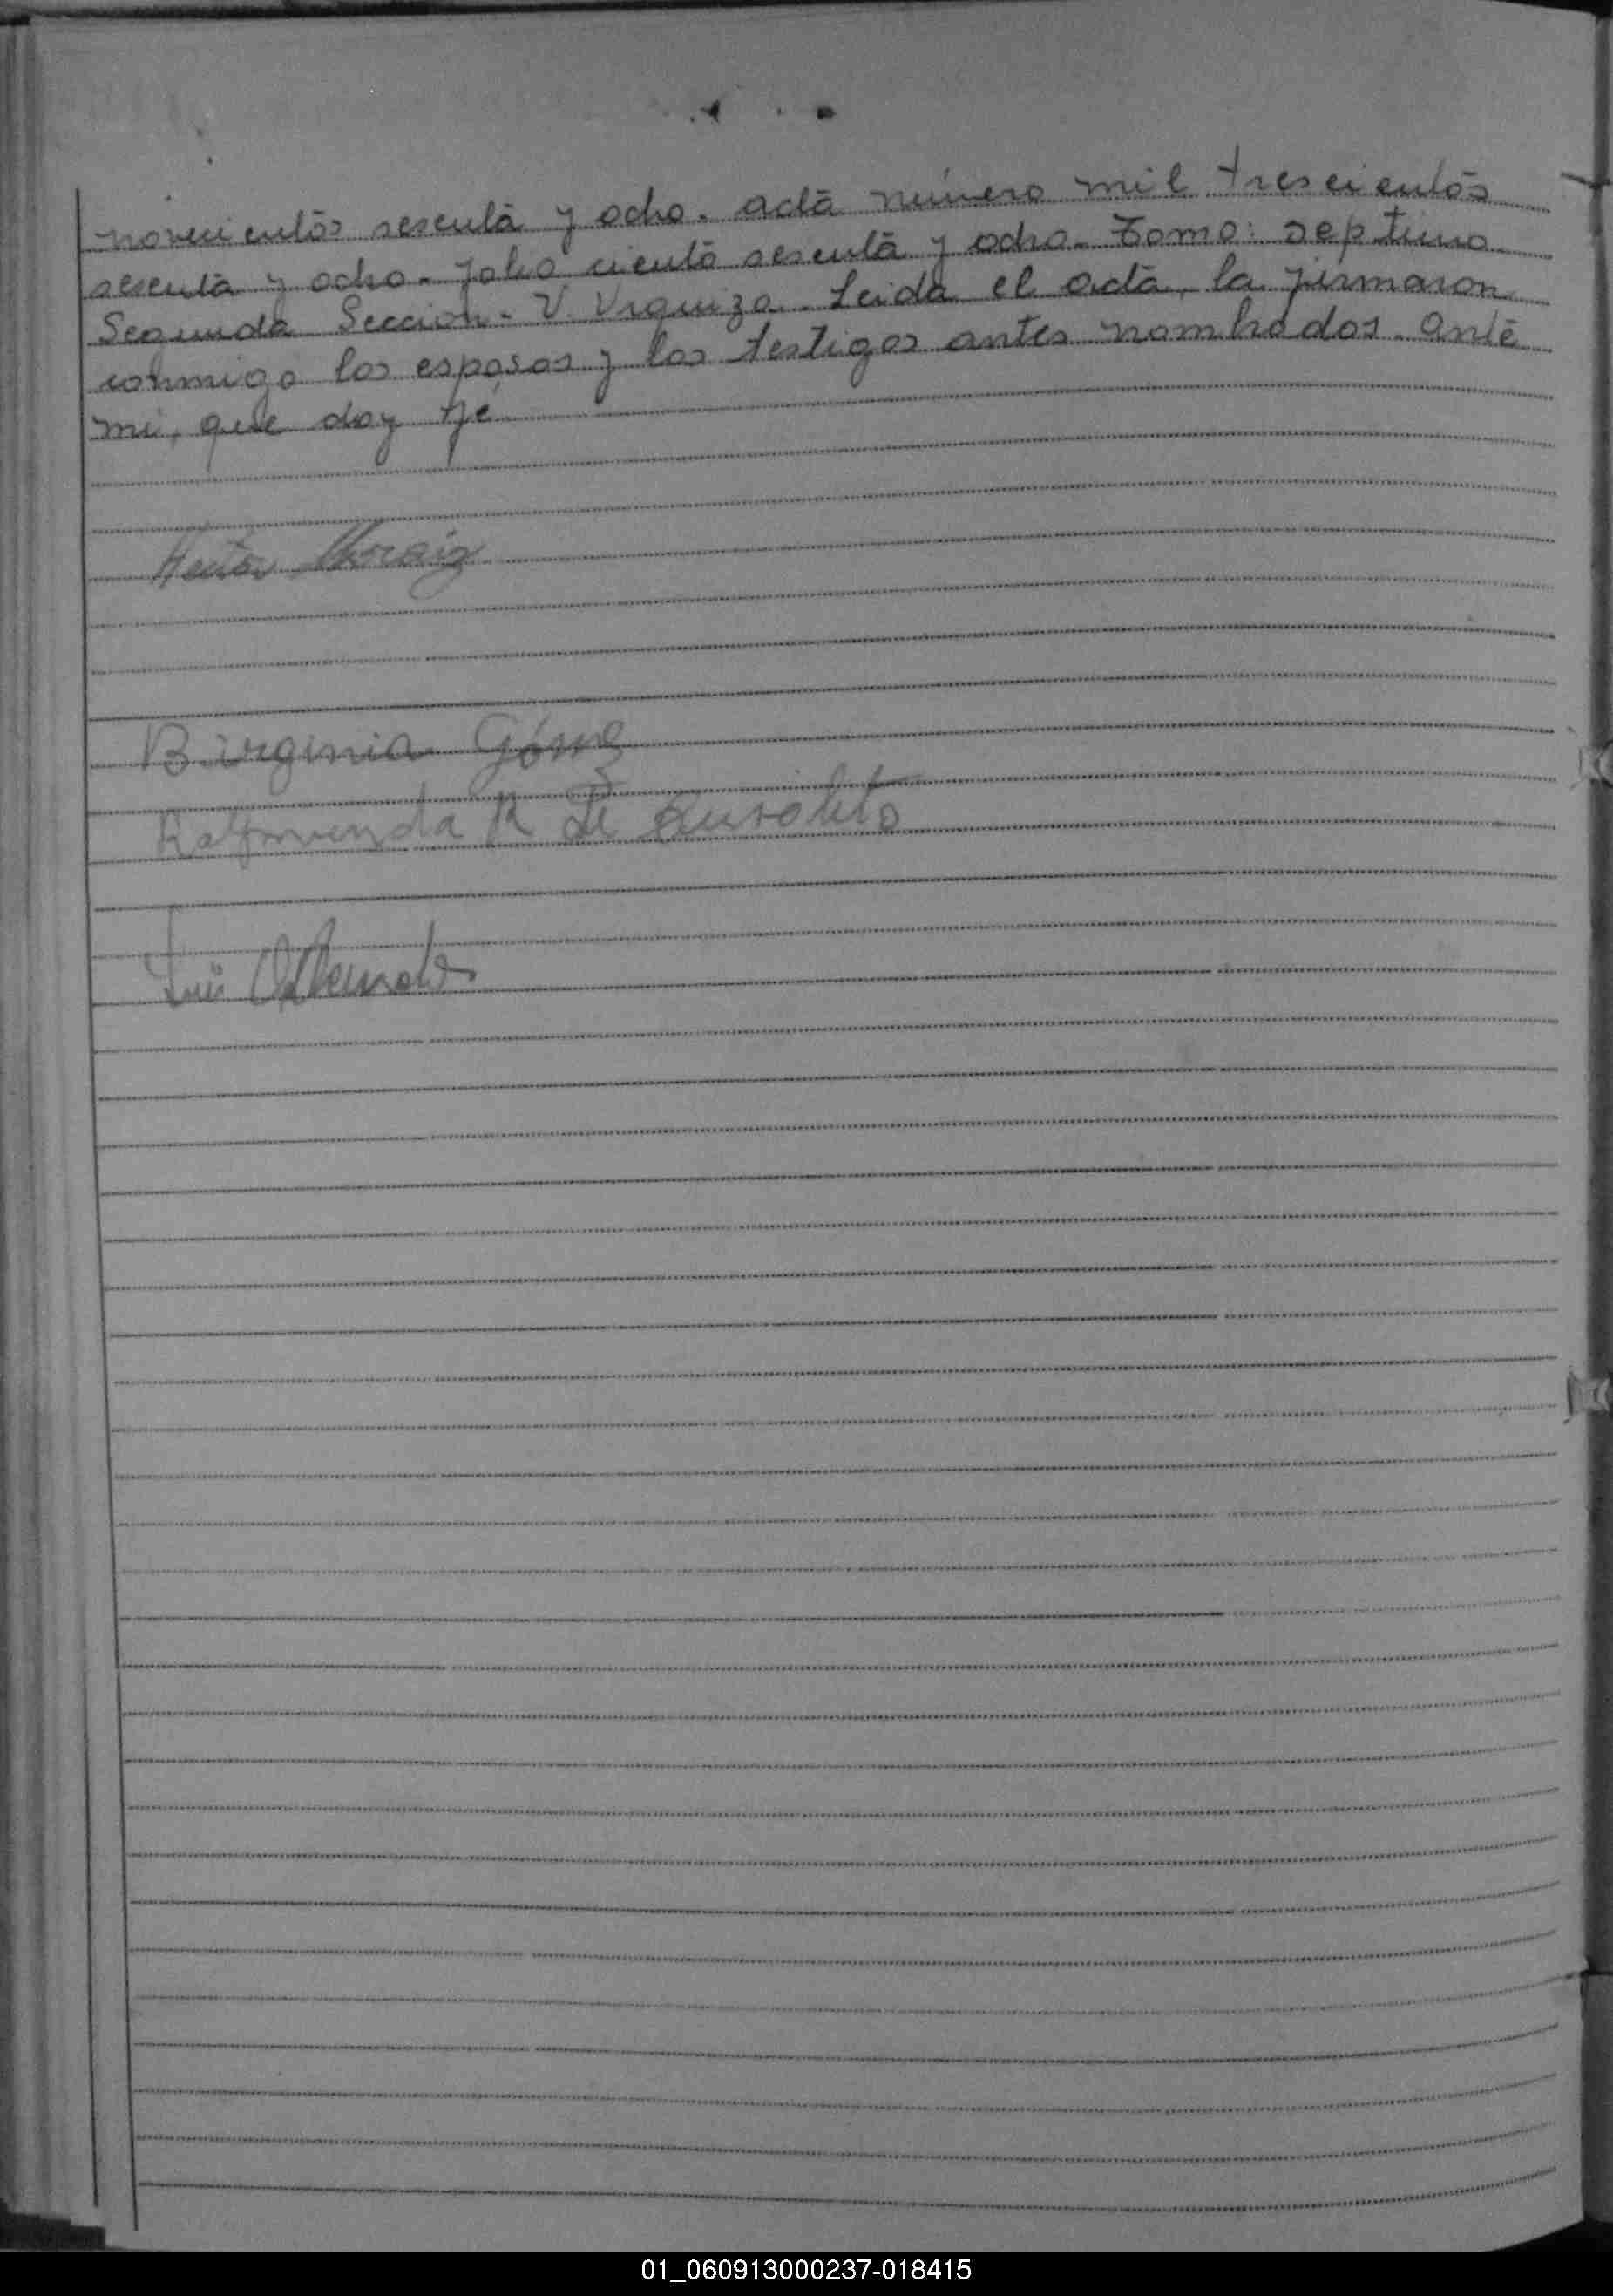 novecientos sesenta y ocho. acta número mil trescientos
sesenta y ocho. folio ciento sesenta y ocho. Tomo: septimo
Segunda Sección. V. Urquiza. Leida el acta, la firmaron
conmigo los esposos y los testigos antes nombrados. Ante
mi, que doy fé.
Birginia Góme
Raymunda R de
Luis
01_060913000237-018415